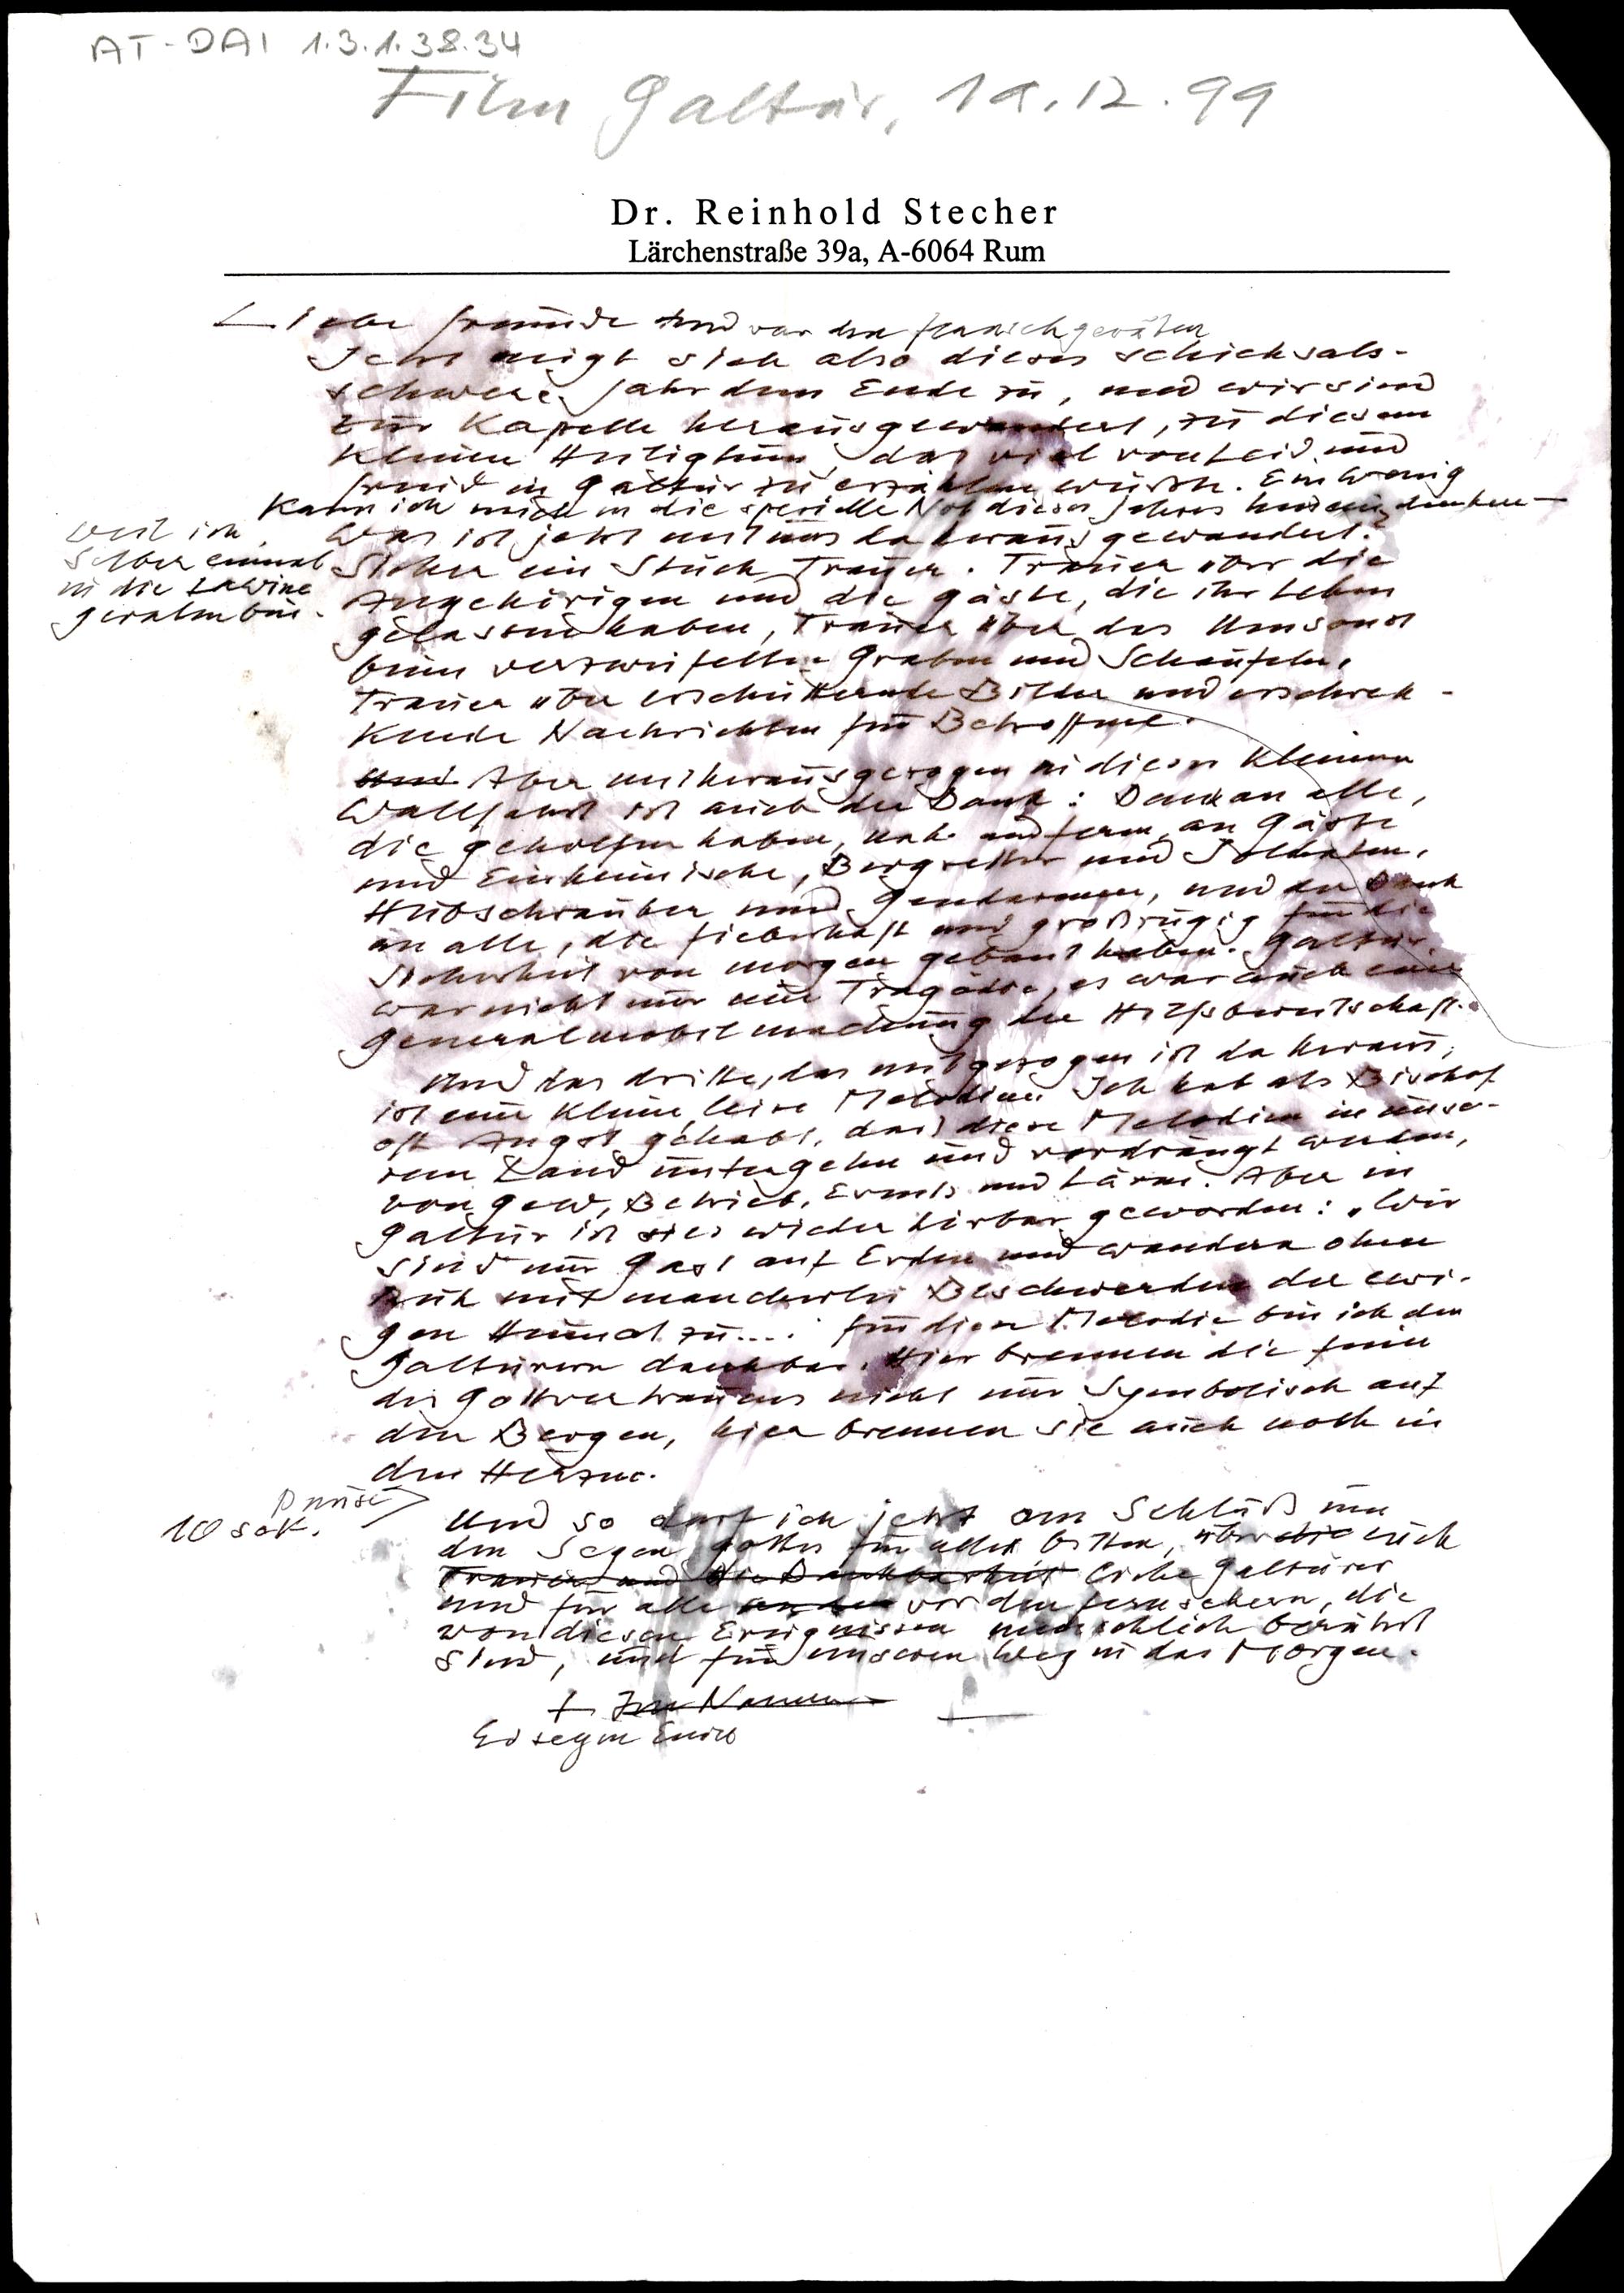 AT-DAI 1.3.1.38.34
Film Galtür, 19.12.99
Dr. Reinhold Stecher
Lärchenstraße 39a, A-6064 Rum
Liebe Freunde und vor den Fernsehgeräten
Jetzt neigt sich also dieses schicksals-
schwere Jahr dem Ende zu, und wir sind
zur Kapelle herausgewandert, zu diesem
kleinen Heiligtum, das viel von Leid und
Freud in Galtür zu erzählen wüsste. Ein wenig
kann ich mich in die spezielle Not dieses Jahres hineindenken –
weil ich
selber einmal
in die Lawine
geraten bin.
Was ist jetzt mit uns da herausgewandert?
Sicher ein Stück Trauer. Trauer über die
Angehörigen und die Gäste, die ihr Leben
gelassen haben, Trauer über das Umsonst
beim verzweifelten Graben und Schaufeln,
Trauer über erschütternde Bilder und erschrek-
kende Nachrichten für Betroffene.
Und Aber mitherausgezogen in dieser kleinen
Wallfahrt ist auch der Dank: Dank an alle,
die geholfen haben, nah und fern, an Gäste
und Einheimische, Bergretter und Soldaten,
Hubschrauber und Gendarmen, und der Dank
an alle, die fieberhaft und großzügig für die
Sicherheit von morgen gebaut haben. Galtür
war nicht nur eine Tragödie, es war auch eine
Generalmobilmachung der Hilfsbereitschaft.
Und das dritte, das mitgezogen ist da heraus,
ist eine kleine, leise Melodie. Ich hab als Bischof
oft Angst gehabt, dass diese Melodien in unse-
rem Land untergehen und verdrängt werden,
von Geld, Betrieb, Events und Lärm. Aber in
Galtür ist sie wieder hörbar geworden: „Wir
sind nur Gast auf Erden und wandern ohne
Ruh mit mancherlei Beschwerden der ewi-
gen Heimat zu.... Für diese Melodie bin ich den
Galtürern dankbar. Hier brennen die Feuer
des Gottvertrauens nicht nur symbolisch auf
den Bergen, hier brennen sie auch noch in
den Herzen.
Pause
10 sek.
Und so darf ich jetzt am Schluß um
den Segen Gottes für alles bitten, über die euch
Trauer und die Dankbarkeit liebe Galtürer
und für alle vor den Fernsehern, die
von diesen Ereignissen menschlich berührt
sind, und für unseren Weg in das Morgen.
+ Im Namen
Es segne Euch